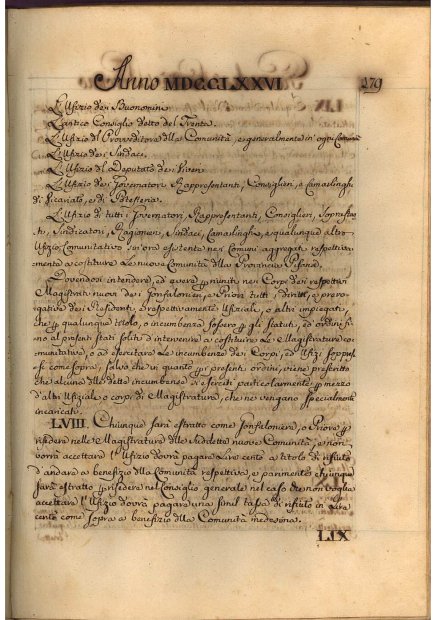 Anno MDCCLXXVI 279
L'Ufizio dei Buonomini
L'antico Consiglio detto del Trenta
L'Ufizio dl Provveditore dlla Comunità, e generalmente in ogni Comunità
L'Ufizio dei Sindaci
L'Ufizio dl Deputato dei Viveri
L'Ufizio dei Governatori, Rappresentanti, Consiglieri, e Camarlinghi
di Vicariato, e di Potesteria
L'Ufizio di tutti i Governatori, Rappresentanti, Consiglieri,
Sindicatori, Ragionieri, Sindaci, Camarlinghi, e qualunque altro
Ufizio Comunitativo sin ora esistente nei Comuni aggregati respettiva-
mente a costituire Le nuove Comunità dlla Provincia Pisana.
Dovendosi intendere, ed avere riuniti nei Corpi dei respettivi
Magistrati nuovi dei Gonfalonieri, e Priori tutti i diritti, e prero-
gative dei Residenti, e respettivamente Ufiziali, o altri impiegati,
che qualunque titolo, o incumbenza fossero gli Statuti, ed ordini fi-
no al presenti stati soliti d'intervenire a costituire Le Magistrature co-
munitative, o ad esercitare Le incumbenze dei Corpi, ed Ufizi soppres-
si come sopra, salvo che in quanto presenti ordini, viene prescritto
che alcuna dlle dette incumbenze si eserciti particolarmente mezzo
d'altri Ufiziale o corpi di Magistratura, che ne vengano specialmente
incaricati.
LVIII. Chiunque sarà estratto come Gonfaloniere, o Priore
risedere nelle Magistrature dlle Suddette nuove Comunità, e non
vorrà accettare l'Ufizio dovrà pagare Lire cento a titolo di rifiuto
d'andare a benefizio dlla Comunità respettiva, e parimente chiunque
sarà estratto risedere nel Consiglio generale nel caso che non voglia
accettare l'Ufizio dovrà pagare una simil tassa di rifiuto in Lire
cento come sopra a benefizio dlla Comunità medesima.
LIX